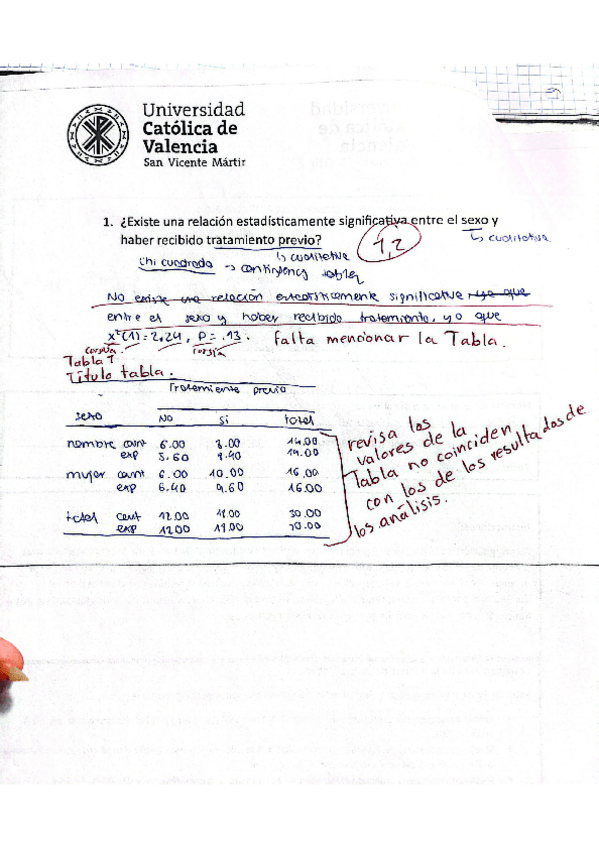 Universidad
Católica de
Valencia
San Vicente Mártir
1. ¿Existe una relación estadísticamente significativa entre el sexo y
haber recibido tratamiento previo?
1,2
↳ cualitativa
↳ cualitativa
chi cuadrado → contingency tables
No existe una relación estadísticamente significativa ya que
entre el sexo y haber recibido tratamiento, ya que
x²(1)=2.24, p=.13. Falta mencionar la Tabla.
cursiva cursiva
Tabla 1
Título tabla.
Tratamiento previo
sexo No Si total
hombre count 6.00 8.00 14.00
exp 5.60 8.40 14.00
mujer count 6.00 10.00 16.00
exp 6.40 9.60 16.00
total count 12.00 18.00 30.00
exp 12.00 18.00 30.00
revisa los
valores de la
Tabla no coinciden
con los de los resultados de
los análisis.